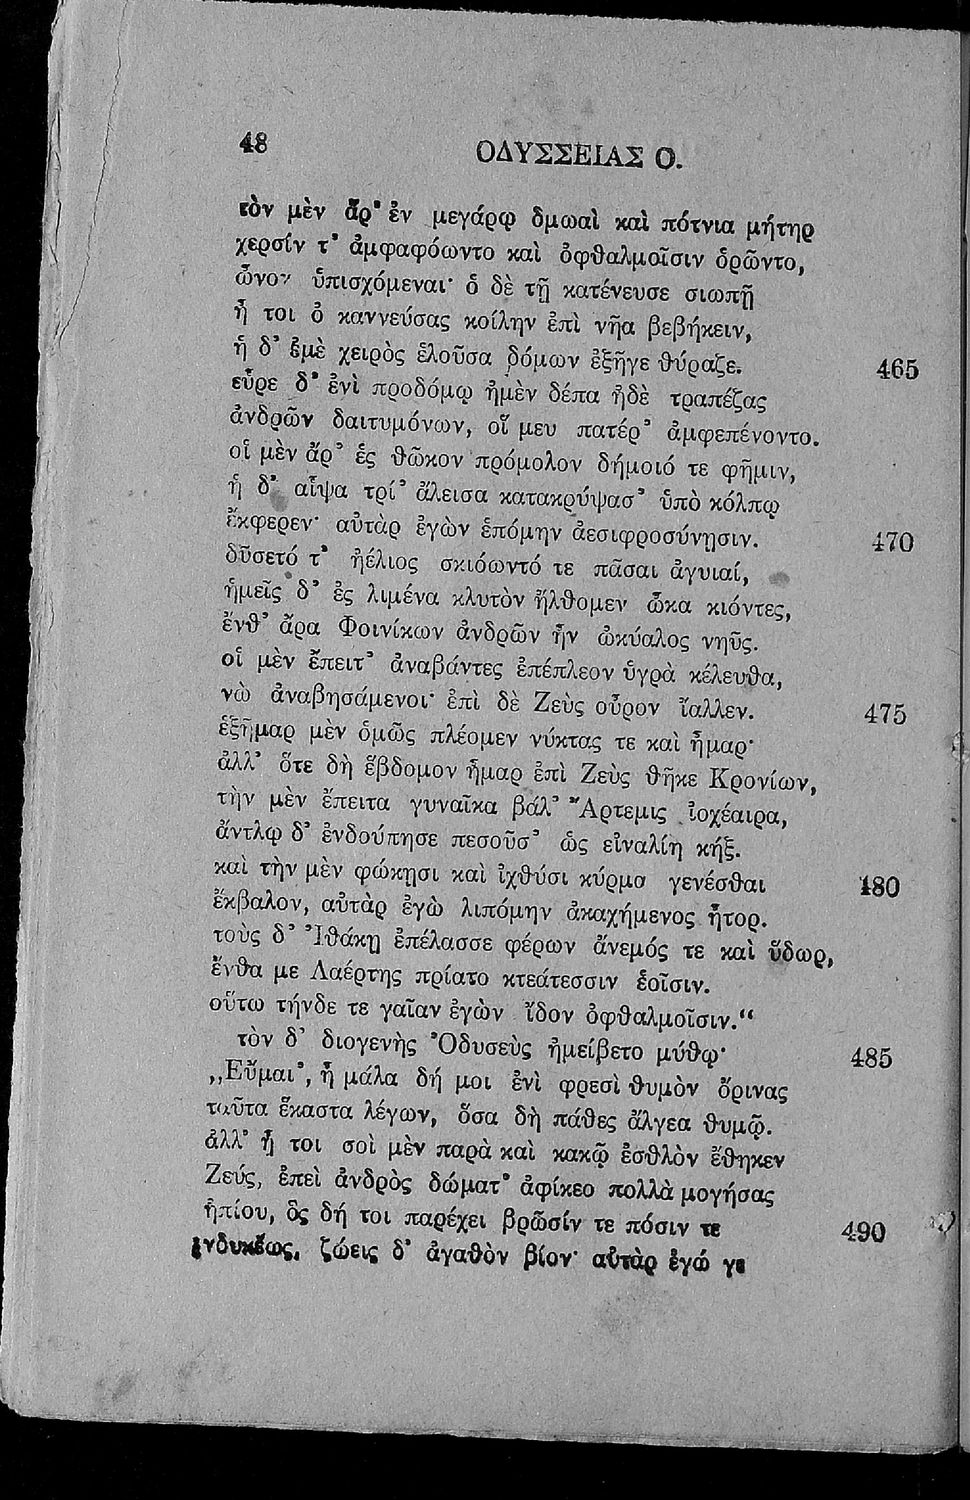 48
ΟΔΥΣΣΕΙΑΣ Ο.
τὸν μὲν ἄρ᾽ ἐν μεγάρῳ δμωαὶ καὶ πότνια μήτηρ
χερσίν τ᾽ ἀμφαφόωντο καὶ ὀφθαλμοῖσιν ὁρῶντο,
ὦνον ὑπισχόμεναι· ὁ δὲ τῇ κατένευσε σιωπῇ
ἦ τοι ὁ καννεύσας κοίλην ἐπὶ νῆα βεβήκειν,
ἡ δ᾽ ἐμὲ χειρὸς ἑλοῦσα δόμων ἐξῆγε θύραζε. 465
εὗρε δ᾽ ἐνὶ προδόμῳ ἠμὲν δέπα ἠδὲ τραπέζας
ἀνδρῶν δαιτυμόνων, οἵ μευ πατέρ᾽ ἀμφεπένοντο.
οἱ μὲν ἄρ᾽ ἐς θῶκον πρόμολον δήμοιό τε φῆμιν,
ἡ δ᾽ αἶψα τρί᾽ ἄλεισα κατακρύψασ᾽ ὑπὸ κόλπῳ
ἔκφερεν· αὐτὰρ ἐγὼν ἑπόμην ἀεσιφροσύνῃσιν. 470
δῦσετό τ᾽ ἠέλιος σκιόωντό τε πᾶσαι ἀγυιαί,
ἡμεῖς δ᾽ ἐς λιμένα κλυτὸν ἤλθομεν ὦκα κιόντες,
ἔνθ᾽ ἄρα Φοινίκων ἀνδρῶν ἦν ὠκύαλος νηῦς.
οἱ μὲν ἔπειτ᾽ ἀναβάντες ἐπέπλεον ὑγρὰ κέλευθα,
νὼ ἀναβησάμενοι· ἐπὶ δὲ Ζεὺς οὖρον ἴαλλεν. 475
ἑξῆμαρ μὲν ὁμῶς πλέομεν νύκτας τε καὶ ἦμαρ·
ἀλλ᾽ ὅτε δὴ ἕβδομον ἦμαρ ἐπὶ Ζεὺς θῆκε Κρονίων,
τὴν μὲν ἔπειτα γυναῖκα βάλ᾽ Ἄρτεμις ἰοχέαιρα,
ἄντλῳ δ᾽ ἐνδούπησε πεσοῦσ᾽ ὡς εἰναλίη κήξ.
καὶ τὴν μὲν φώκῃσι καὶ ἰχθύσι κύρμα γενέσθαι 480
ἔκβαλον, αὐτὰρ ἐγὼ λιπόμην ἀκαχήμενος ἦτορ.
τοὺς δ᾽ Ἰθάκῃ ἐπέλασσε φέρων ἄνεμός τε καὶ ὕδωρ,
ἔνθα με Λαέρτης πρίατο κτεάτεσσιν ἑοῖσιν.
οὕτω τήνδε τε γαῖαν ἐγὼν ἴδον ὀφθαλμοῖσιν.“
τὸν δ᾽ διογενὴς Ὀδυσεὺς ἠμείβετο μύθῳ· 485
„Εὔμαι᾽, ἦ μάλα δή μοι ἐνὶ φρεσὶ θυμὸν ὄρινας
ταῦτα ἕκαστα λέγων, ὅσα δὴ πάθες ἄλγεα θυμῷ.
ἀλλ᾽ ἦ τοι σοὶ μὲν παρὰ καὶ κακῷ ἐσθλὸν ἔθηκεν
Ζεύς, ἐπεὶ ἀνδρὸς δώματ᾽ ἀφίκεο πολλὰ μογήσας
ἠπίου, ὃς δή τοι παρέχει βρῶσίν τε πόσιν τε 490
ἐνδυκέως, ζώεις δ᾽ ἀγαθὸν βίον· αὐτὰρ ἐγώ γε